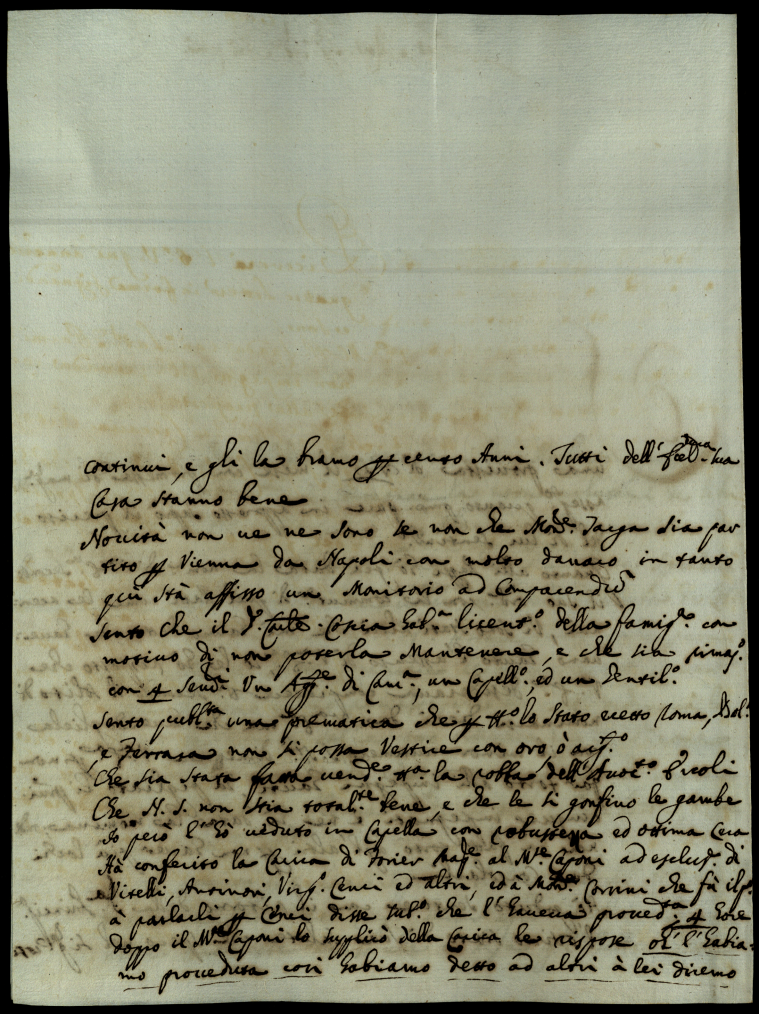 continui, e gli la bramo p cento Anni. Tutti dell' sua
Casa stanno bene
Novità non ve ne sono se non che Mons.r sia par
tito p Vienna da Napoli con molto danaro in tanto
qui stà affisso un Monitorio ad Comparendũ
Sento che il Card.le Coscia hab.a licenz.o della famig.a con
motivo di non poterla Mantenere, e che sia rimas.o
con 4 Serv.i Un Aj.te di Cam.a, un Capell.o, ed un Gentil.o
Sento publ.ta una premativa che p tt.o lo Stato ecetto Roma, Bol.a
e Ferrara non si possa Vestire con oro, ò arg.o
Che sia stata fatta vend.e tt.a la robba dell' Ercoli
Che N. S. non stia total.te bene, e che le si gonfino le gambe
Io però l' hò veduto in Capella con robustezza ed ottima cera
Hà conferito la Carica di Forier Mag.e al M.se Caponi ad esclus.e di
Vitelli, Antinori, Cenci ed altri, ed à Mons.r Corsini che fù
à parlarli p Cenci disse sub.o che l' haveva proved.ta, p
doppo il M.se Caponi lo supplicò della Carica le rispose l' habia-
mo proveduta così habiamo detto ad altri à lei diremo